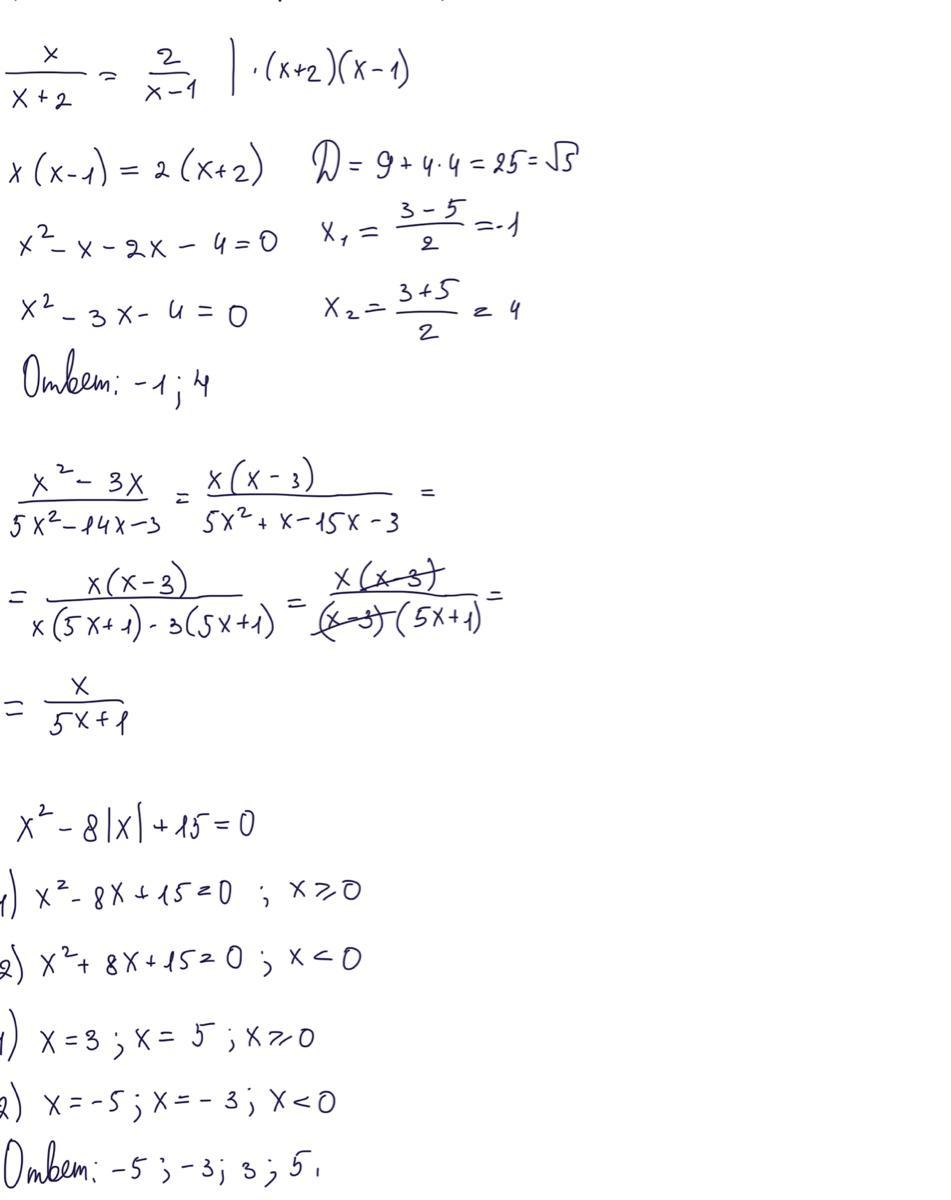 x/(x+2) = 2/(x-1) | ·(x+2)(x-1)
x(x-1) = 2(x+2)
x² - x - 2x - 4 = 0
x² - 3x - 4 = 0
D = 9 + 4·4 = 25 = √5
x₁ = (3-5)/2 = -1
x₂ = (3+5)/2 = 4
Ответ: -1; 4
(x² - 3x)/(5x² - 14x - 3) = x(x-3)/(5x² + x - 15x - 3) =
= x(x-3)/(x(5x+1) - 3(5x+1)) = x(x-3)/((x-3)(5x+1)) =
= x/(5x+1)
x² - 8|x| + 15 = 0
1) x² - 8x + 15 = 0 ; x ⩾ 0
2) x² + 8x + 15 = 0 ; x < 0
1) x = 3 ; x = 5 ; x ⩾ 0
2) x = -5 ; x = -3 ; x < 0
Ответ: -5 ; -3 ; 3 ; 5.